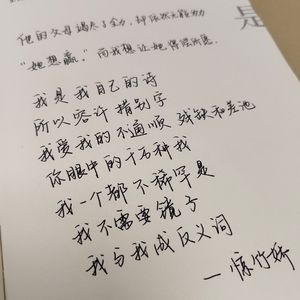 她的父母竭尽了全力，却依然无能为力
“她想赢。”而我想让她得偿所愿
是
我是我自己的诗
所以容许错别字
我爱我的不通顺 残缺和差池
你眼中的千万种我
我一个都不稀罕是
我不需要镜子
我与我成反义词